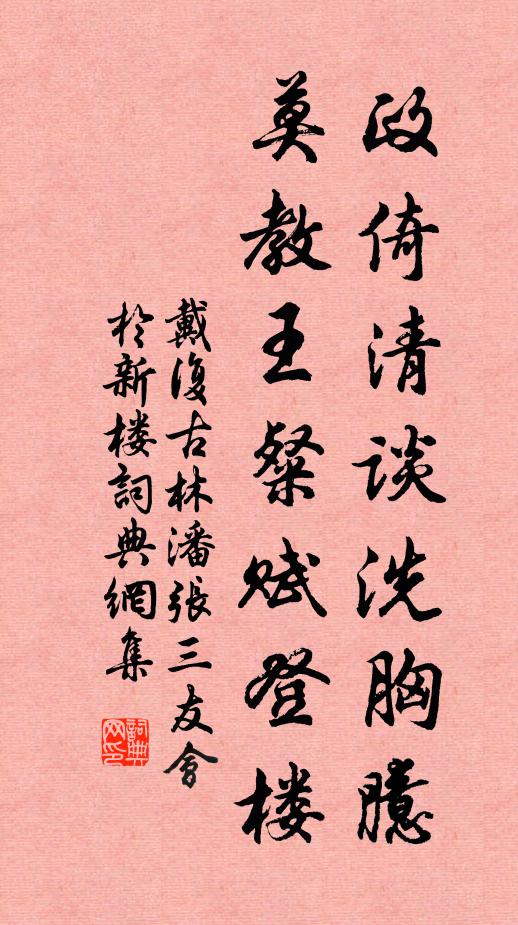 政倚清谈洗胸臆
莫教王粲赋登楼
戴復古林潘張三友會
於新楼詞典網集
詞典網印